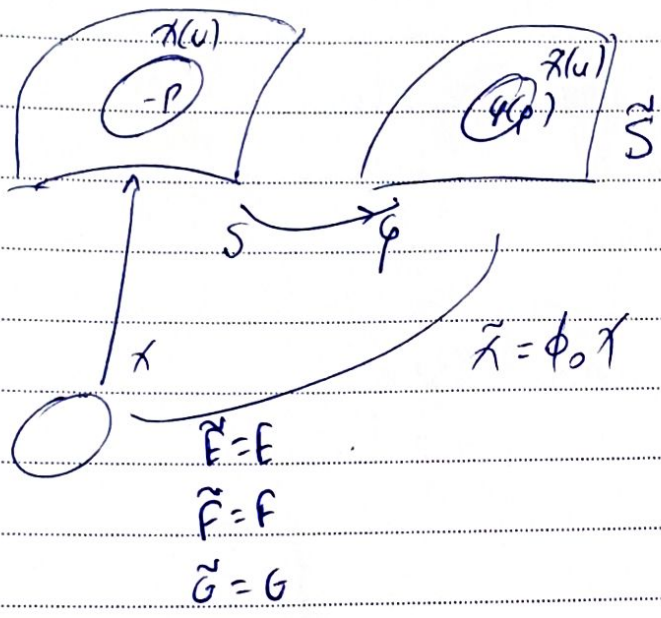 X(u)
-P
X̃(u)
φ(p)
S̃
S
φ
X
X̃ = φ∘X
Ẽ = E
F̃ = F
G̃ = G